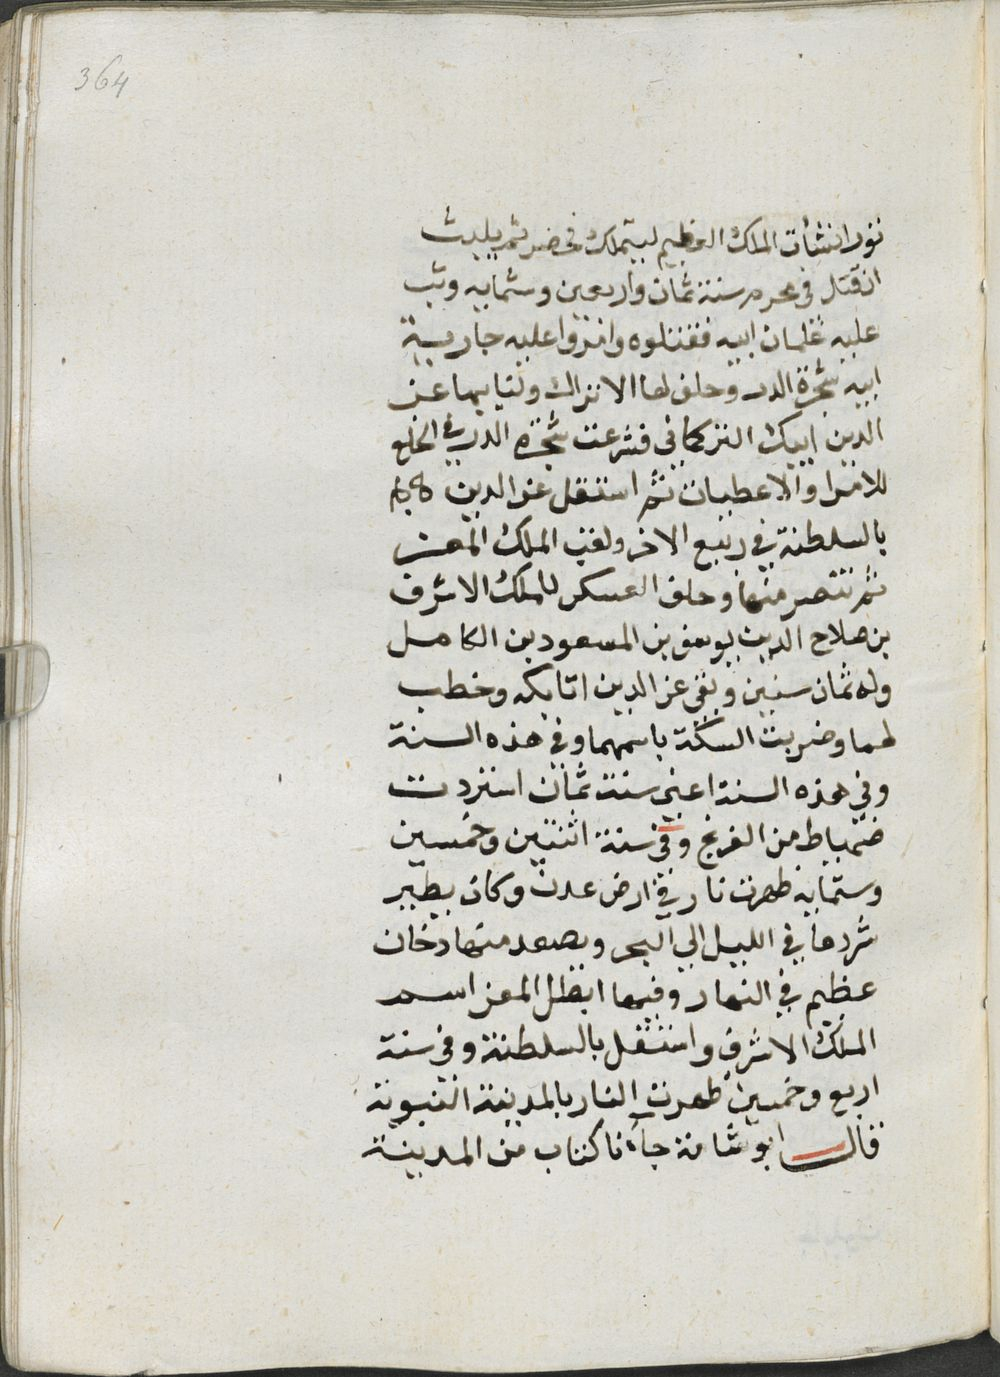 364
نورانشأت الملك العظيم ليتملك فحضر ثم يلبث
ان قتل في محرم سنة ثمان واربعين وستمايه وثب
عليه غلمان ابيه فقتلوه وامروا عليه جارية
ابيه شجرة الدر وحلف لها الاتراك ولنايبها عز
الدين ايبك التركماني فشرعت شجره الدر في الخلع
للامرا والاعطيات ثم استقل عز الدين
بالسلطنة في ربيع الاخر ولقب الملك المعز
ثم تنصر منها وحلف العسكر للملك الاشرف
بن صلاح الدين يوسف بن المسعود بن الكامل
وله ثمان سنين وبقي عز الدين اتابكه وخطب
لهما وضربت السكة باسمهما وفي هذه السنة
وفي هذه السنة اعني سنة ثمان استردت
ضمياط من الفرنج وفي سنة اثنتين وخمسين
وستمايه ظهرت نار في ارض عدن وكان يطير
شررها في الليل الي البحر ويصعد منها دخان
عظيم في النهار وفيها ابطل المعز اسم
الملك الاشرف واستقل بالسلطنة وفي سنة
اربع وخمسين ظهرت النار بالمدينة النبوية
قال ابو شامة جآءنا كتاب من المدينة